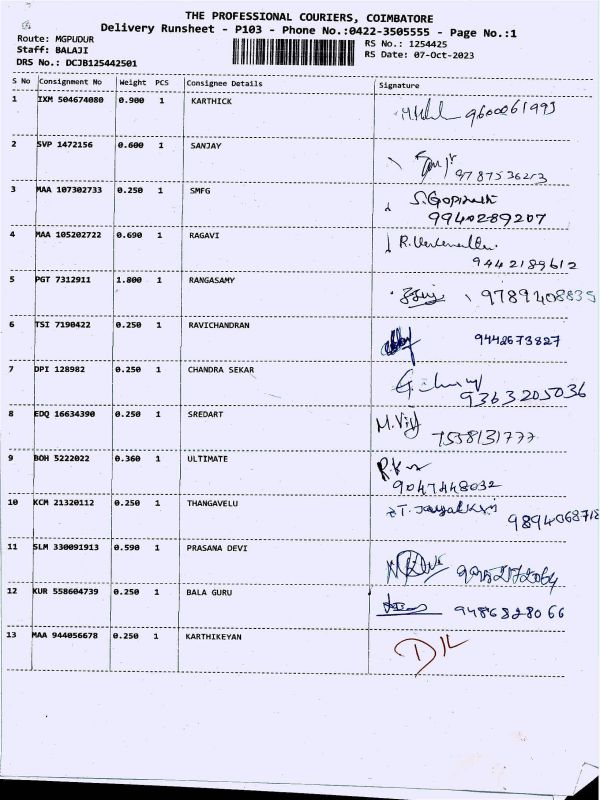 THE PROFESSIONAL COURIERS, COIMBATORE
Delivery Runsheet - P103 - Phone No.:0422-3505555 - Page No.:1
Route: MGPUDUR
RS No.: 1254425
Staff: BALAJI
RS Date: 07-Oct-2023
DRS No.: DCJB125442501
S No Consignment No Weight PCS Consignee Details Signature
1 IXM 504674080 0.900 1 KARTHICK 9600061993
2 SVP 1472156 0.600 1 SANJAY
9787536213
3 MAA 107302733 0.250 1 SMFG S. Gopinath
9940289207
4 MAA 105202722 0.690 1 RAGAVI
9442189612
5 PGT 7312911 1.800 1 RANGASAMY 9789408835
6 TSI 7190422 0.250 1 RAVICHANDRAN 9442673827
7 DPI 128982 0.250 1 CHANDRA SEKAR
9363205036
8 EDQ 16634390 0.250 1 SREDART M. Vij
7558131777
9 BOH 5222022 0.360 1 ULTIMATE
9047448032
10 KCM 21320112 0.250 1 THANGAVELU
9894068718
11 SLM 330091913 0.590 1 PRASANA DEVI
12 KUR 558604739 0.250 1 BALA GURU 9486828066
13 MAA 944056678 0.250 1 KARTHIKEYAN D/L